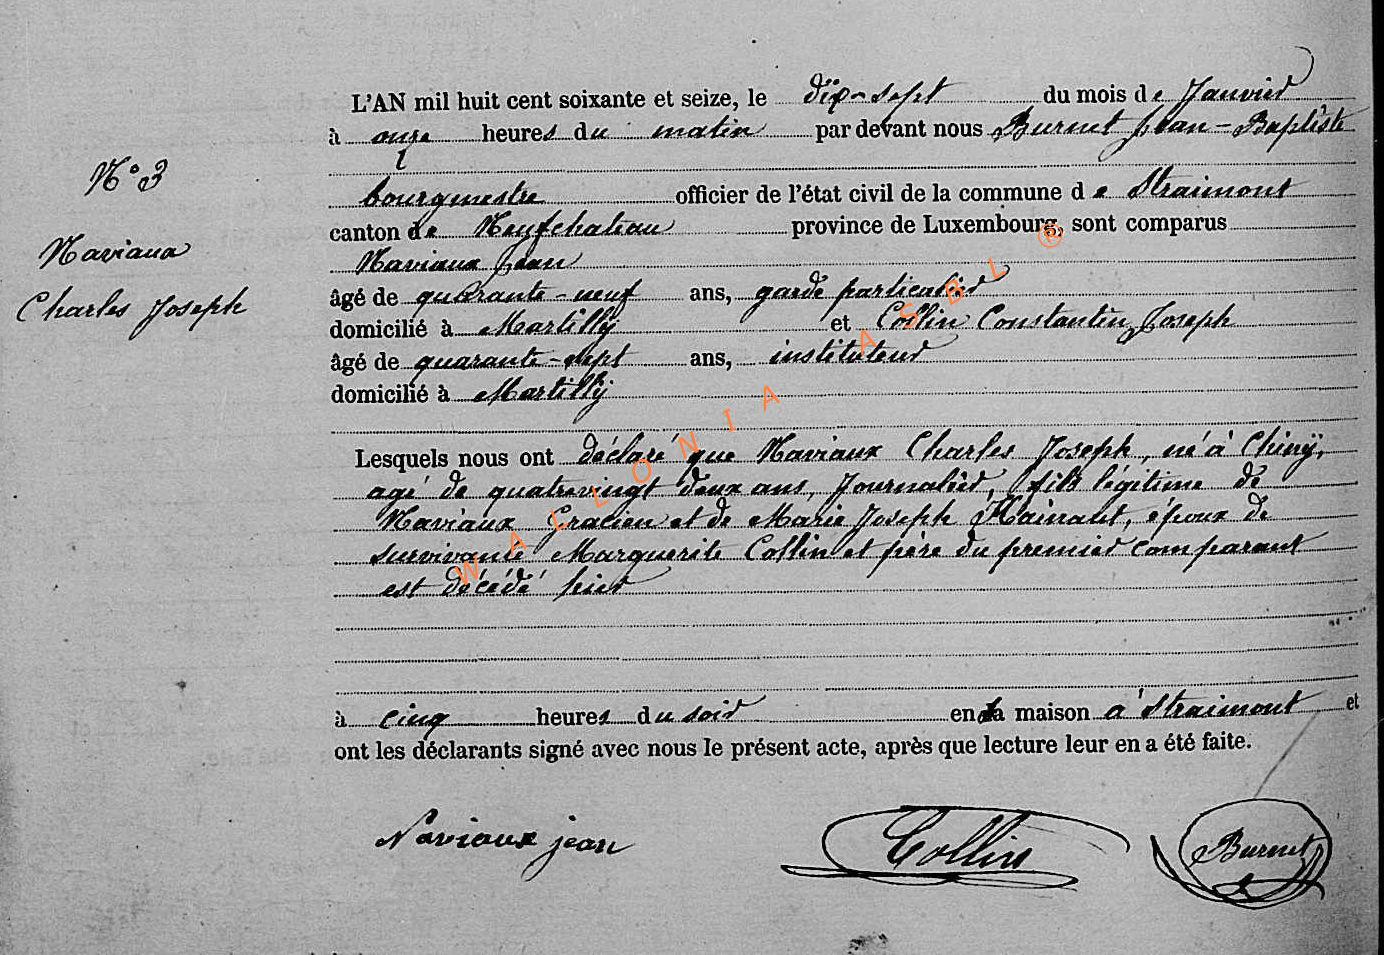 L'AN mil huit cent soixante et seize, le dix-sept du mois de Janvier
à onze heures du matin par devant nous Burnet Jean-Baptiste
N° 3
bourgmestre officier de l'état civil de la commune de Straimont
canton de Neufchateau province de Luxembourg, sont comparus
Naviaux
Naviaux Jean
âgé de quarante-neuf ans, garde particulier
Charles Joseph
domicilié à Martilly et Collin Constantin Joseph
âgé de quarante-sept ans, instituteur
domicilié à Martilly
Lesquels nous ont déclaré que Naviaux Charles Joseph, né à Chiny,
agé de quatrevingt deux ans, Journalier, fils légitime de
Naviaux Gracien et de Marie Joseph Hainaut, époux de
survivante Marguerite Collin et père du premier comparant
est décédé hier
à cinq heures du soir en sa maison à Straimont et
ont les déclarants signé avec nous le présent acte, après que lecture leur en a été faite.
Naviaux jean Collin Burnet
WALLONIA ASBL ®